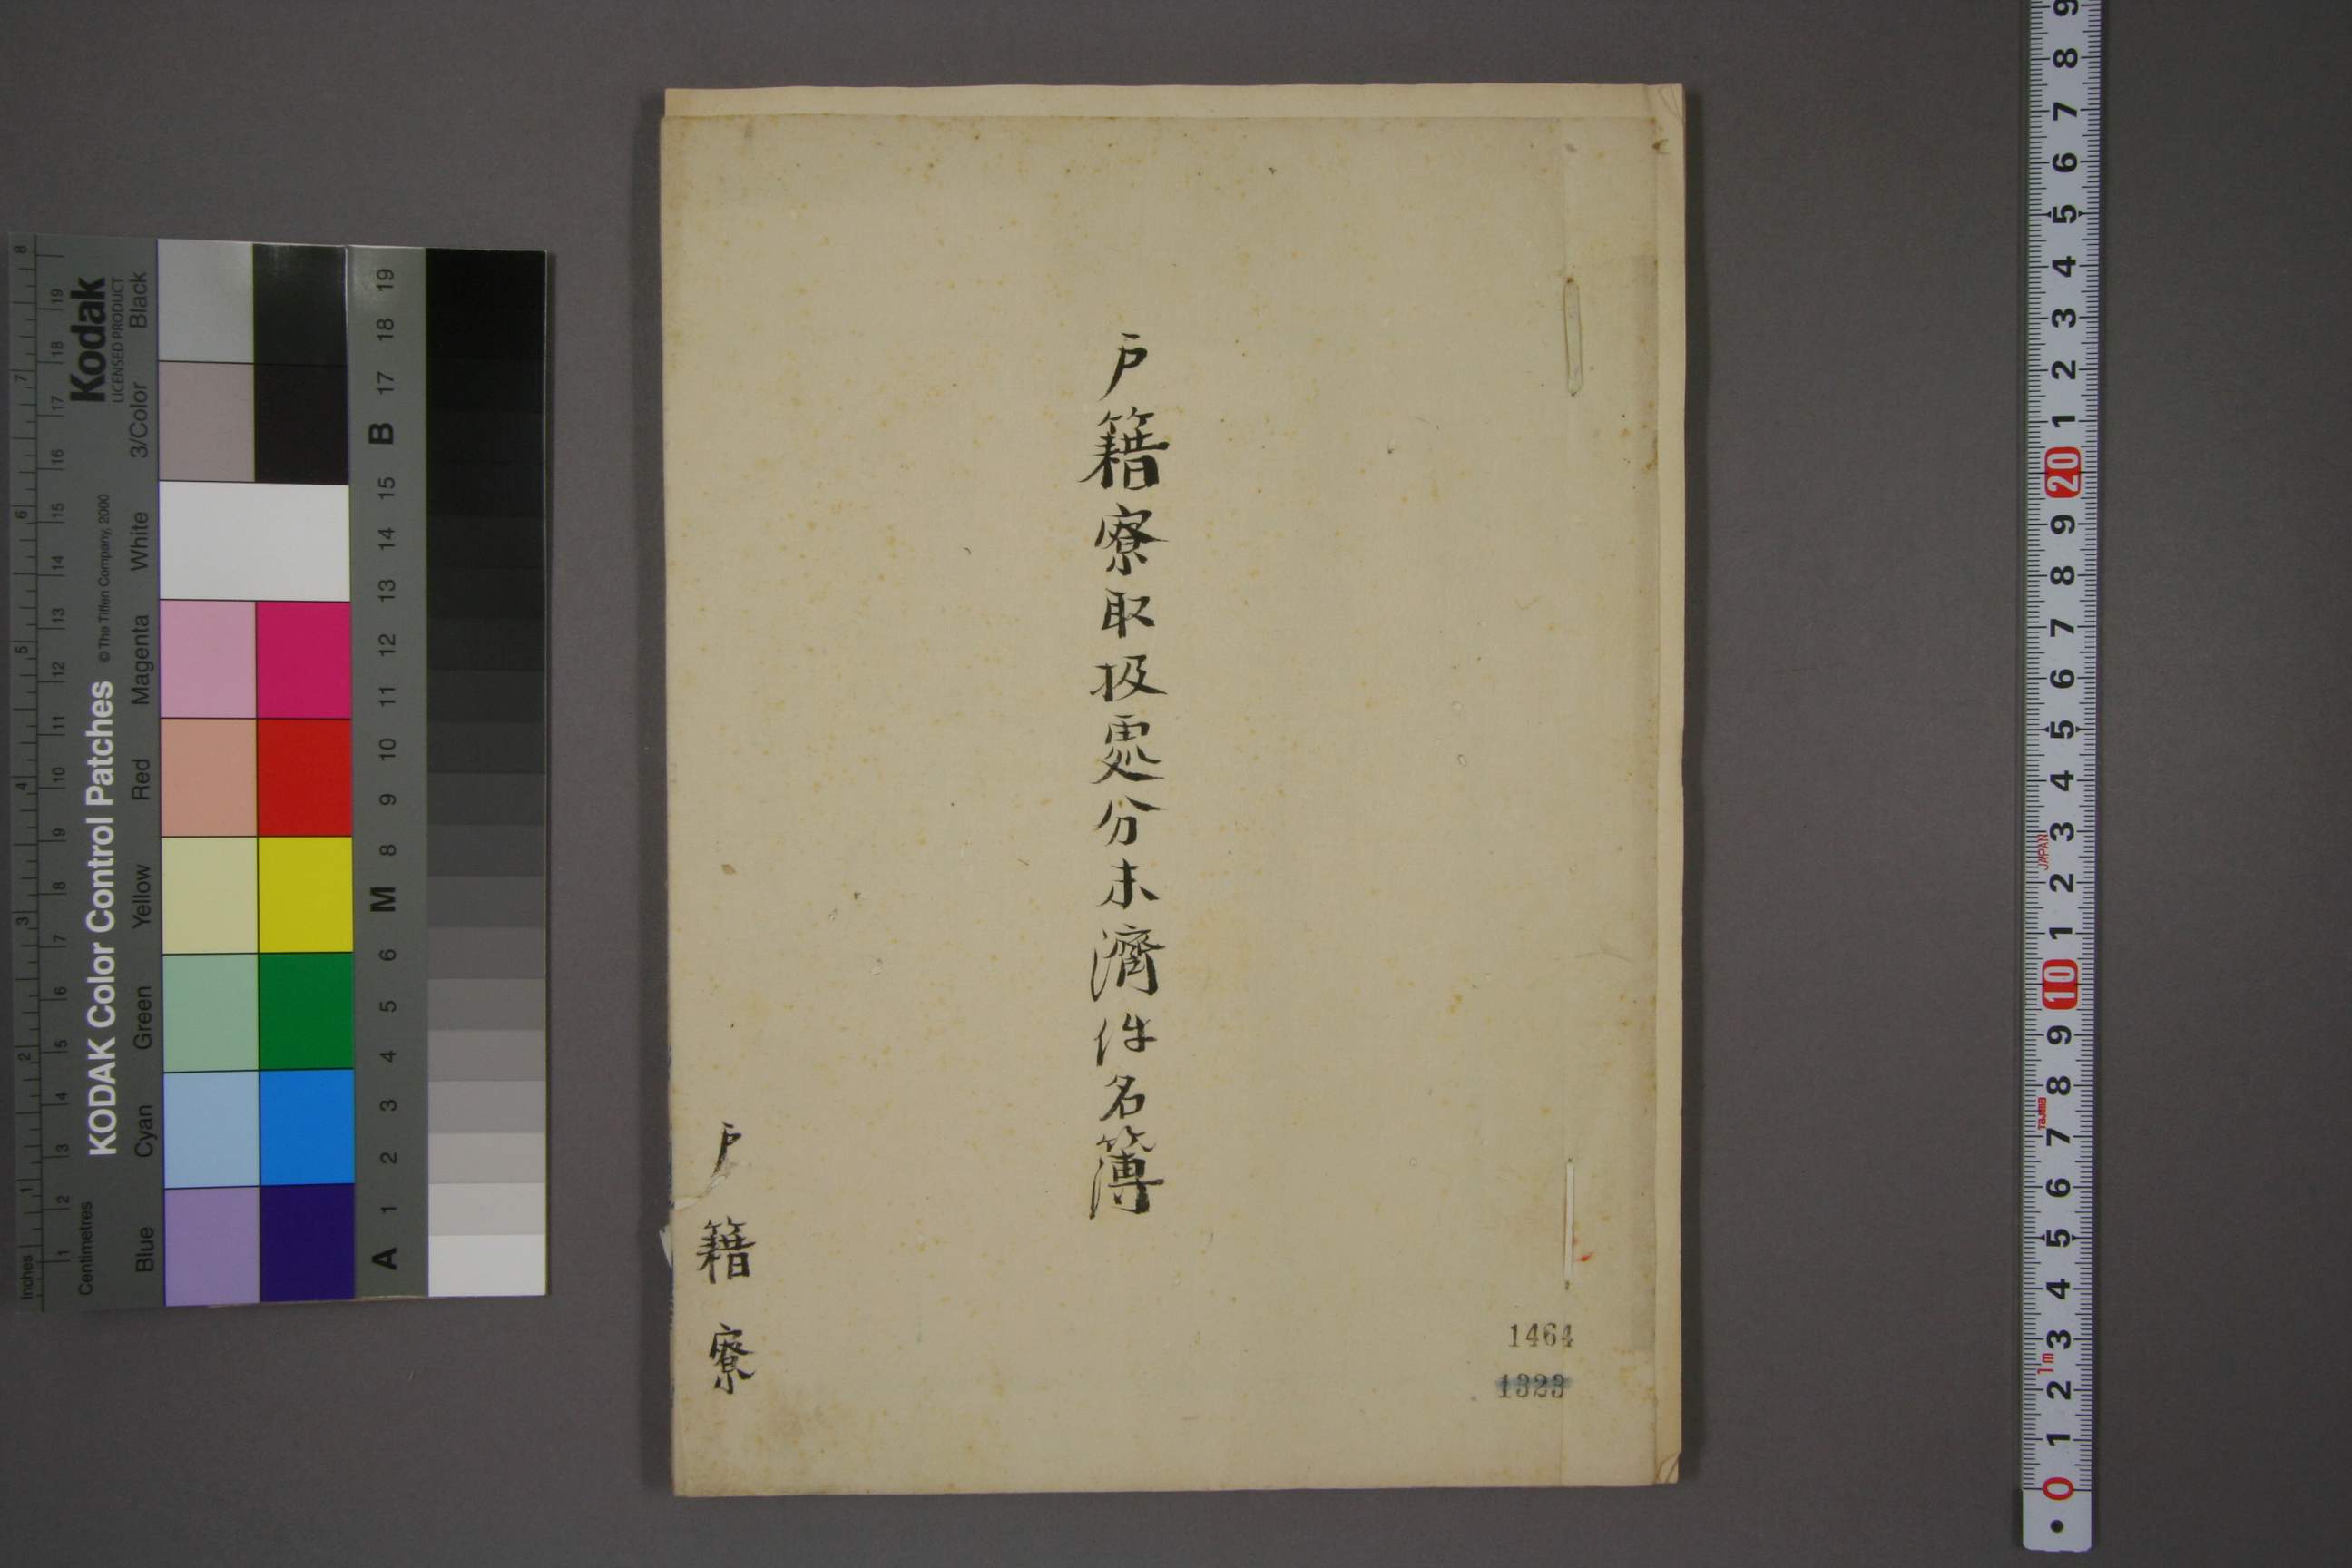 戸籍寮取扱處分未濟件名簿
戸籍寮
1464
1323
KODAK Color Control Patches
© The Tiffen Company, 2000
Kodak
LICENSED PRODUCT
Inches
1 2 3 4 5 6 7 8
Centimetres
1 2 3 4 5 6 7 8 9 10 11 12 13 14 15 16 17 18 19
Blue Cyan Green Yellow Red Magenta White 3/Color Black
A 1 2 3 4 5 6 M 8 9 10 11 12 13 14 15 B 17 18 19
0 1 2 3 4 5 6 7 8 9 10 1 2 3 4 5 6 7 8 9 20 1 2 3 4 5 6 7 8 9
1m
Tajima
JAPAN